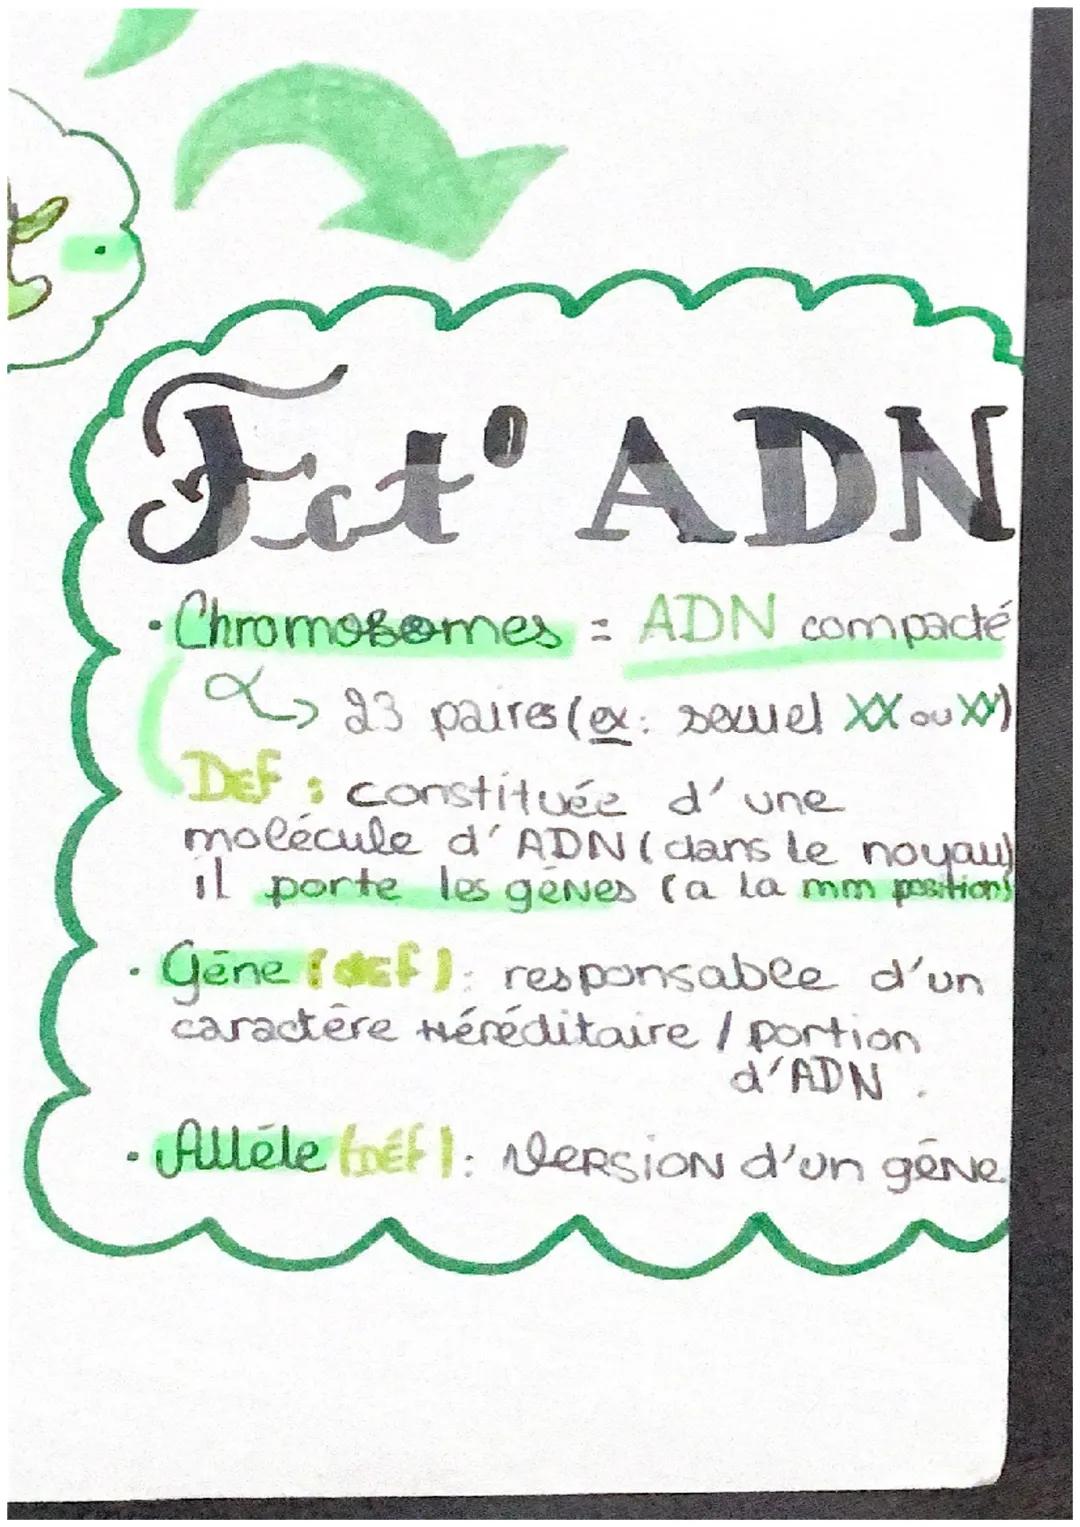 Fct° ADN
• Chromosomes = ADN compacté
↳ 23 paires (ex: sexuel XX ou XY)
DéF : constituée d'une
molécule d'ADN (dans le noyau)
il porte les gènes (a la mm position)
• Gène (déf) : responsable d'un
caractère Héréditaire / portion
d'ADN.
• Allèle (DéF) : VERSION d'un gène.